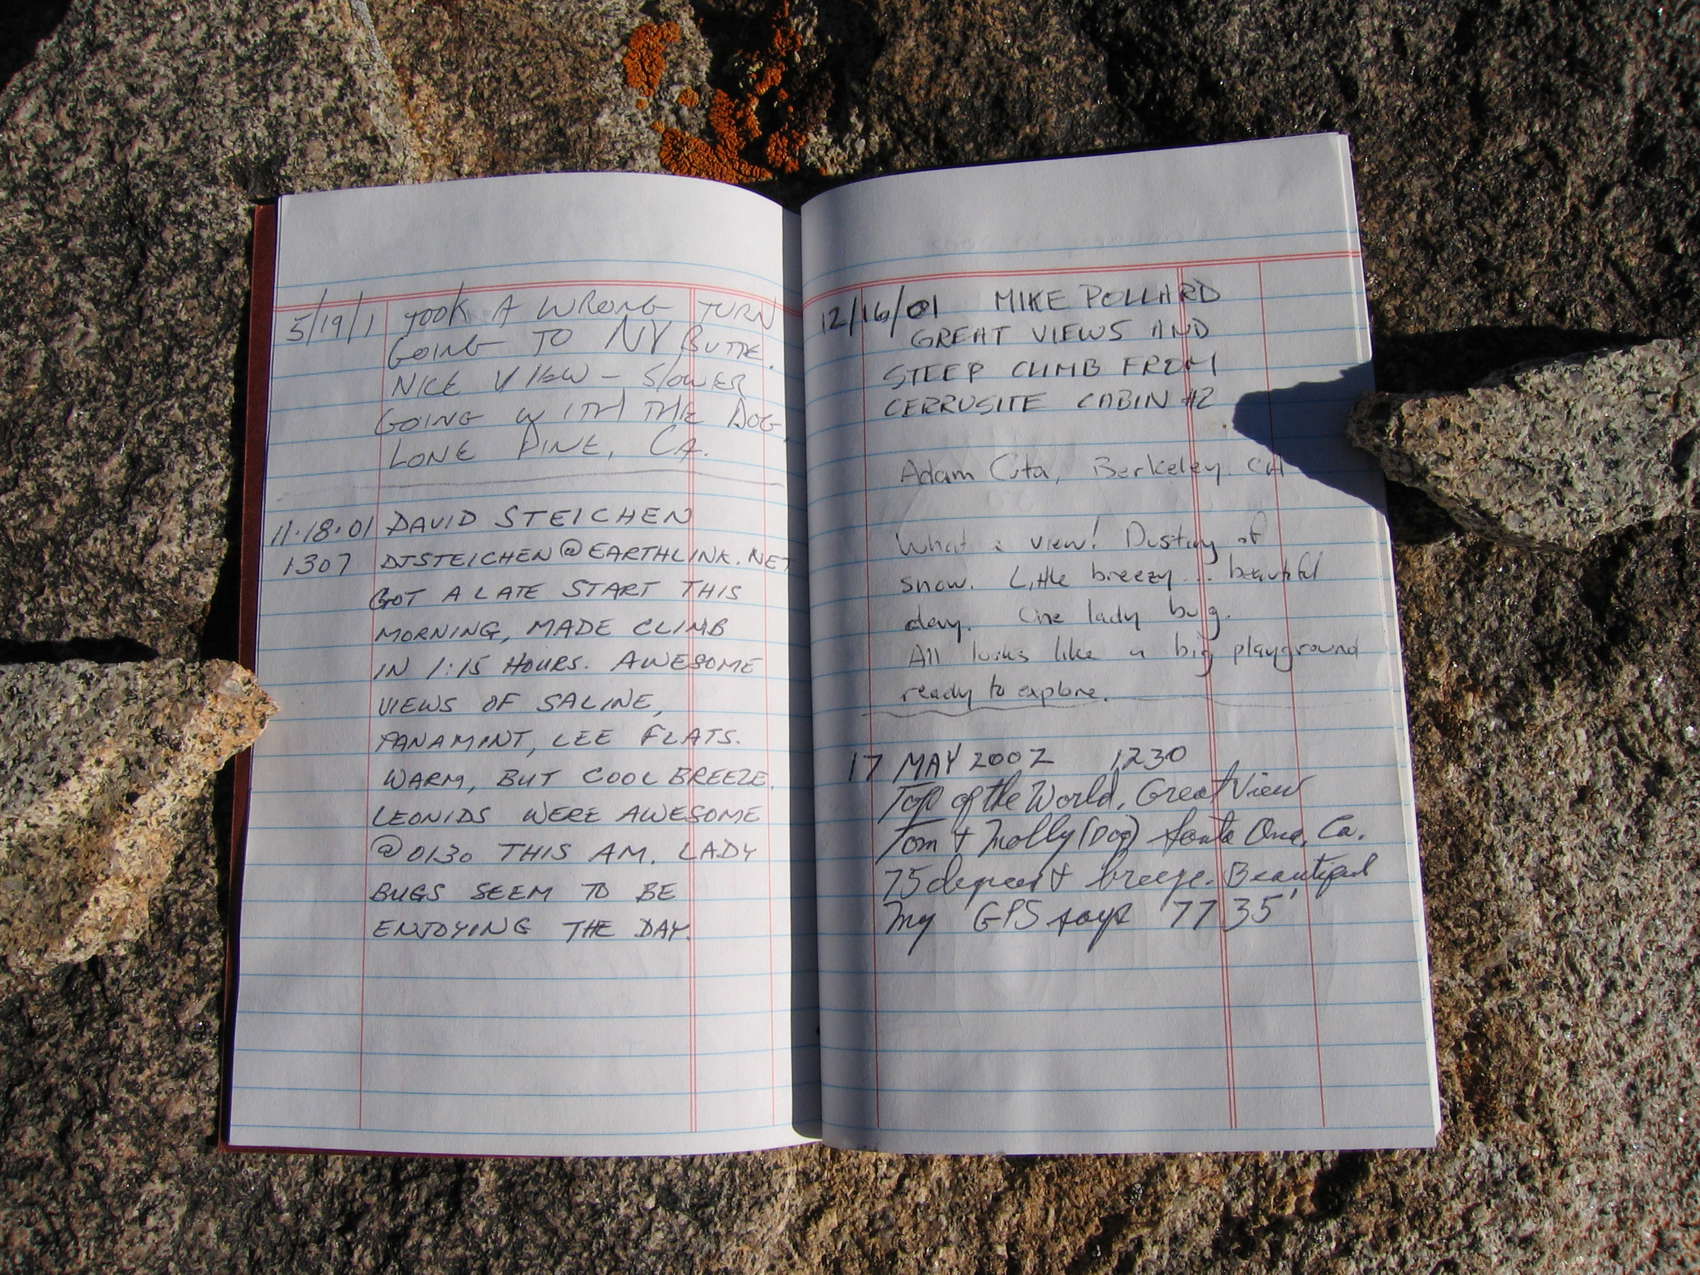 5/19/1 TOOK A WRONG TURN
GOING TO NY BUTTE.
NICE VIEW – SLOWER
GOING WITH THE DOG.
LONE PINE, CA.
11·18·01 DAVID STEICHEN
1307 DJSTEICHEN@EARTHLINK.NET
GOT A LATE START THIS
MORNING, MADE CLIMB
IN 1:15 HOURS. AWESOME
VIEWS OF SALINE,
PANAMINT, LEE FLATS.
WARM, BUT COOL BREEZE.
LEONIDS WERE AWESOME
@0130 THIS AM. LADY
BUGS SEEM TO BE
ENJOYING THE DAY.
12/16/01 MIKE POLLARD
GREAT VIEWS AND
STEEP CLIMB FROM
CERRUSITE CABIN #2
Adam Berkeley, CA
What a view! Dusting of
snow. Little breezy... beautiful
day. One lady bug.
All looks like a big playground
ready to explore.
17 MAY 2002 1230
Top of the World, Great View
Tom + Molly (Dog) Santa Ana, Ca.
75 degrees + breeze. Beautiful
My GPS says 7735'